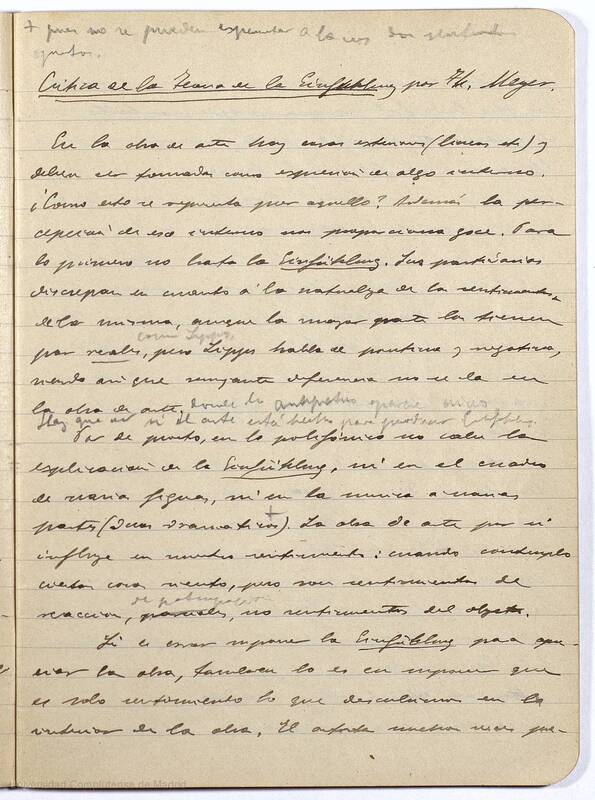 + pues no se pueden experimentar a la vez dos sentimientos
opuestos.
Crítica de la Teoría de la Einfühling por Th. Meyer.
En la obra de arte hay cosas exteriores (líneas etc) y
deben ser tomadas como expresión de algo interno.
¿Como esto se representa por aquello? Además la per-
cepción de eso interno nos proporciona goce. Para
lo primero no basta la Einfühling. Sus partidarios
discrepan en cuanto á la naturaleza de los sentimientos
de la misma, aunque la mayor parte los tienen
como Lipps.
por reales, pero Lipps habla de positiva y negativa,
siendo así que semejante diferencia no se da en
la obra de arte, donde lo antipático aparece
Hay que ver si el arte está hecho para producir
de pronto, en lo polifónico no cabe la
explicación de la Einfühling, ni en el cuadro
de varias figuras, ni en la musica a varias
+
partes (duos dramaticos). La obra de arte por si
influye en nuestro sentimiento: cuando contemplo
ciertas cosas siento, pero son sentimientos de
de participación
reaccion, no sentimientos del objeto.
Si es error suponer la Einfühling para apre-
ciar la obra, tambien lo es en suponer que
es solo sentimiento lo que descubrimos en lo
interior de la obra. El artista muchas veces pre-
Universidad Complutense de Madrid